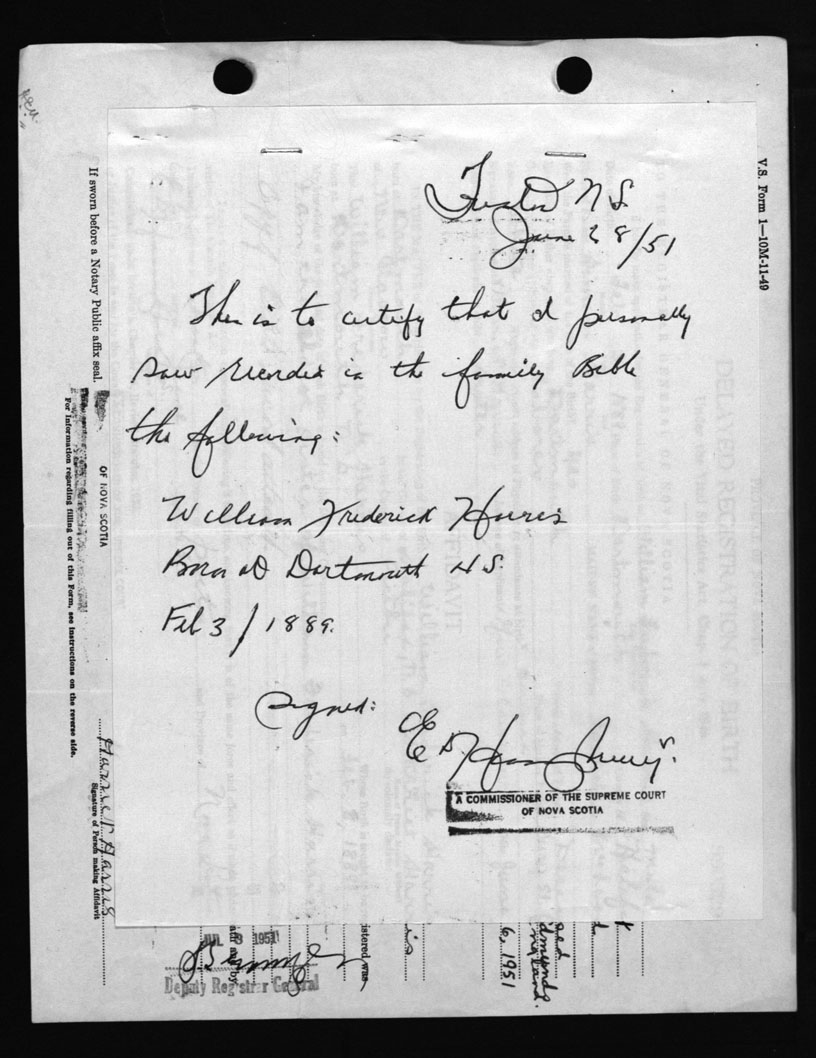 V.S. Form 1—10M-11-49
N.S.
June 28/51
This is to certify that I personally
saw recorded in the family Bible
the following:
William Frederick Harris
Born at Dartmouth N.S.
Feb 3/1889.
Signed:
A COMMISSIONER OF THE SUPREME COURT
OF NOVA SCOTIA
If sworn before a Notary Public affix seal.
OF NOVA SCOTIA
For information regarding filling out of this Form, see instructions on the reverse side.
Harris
Signature of Person making Affidavit
JUL 1951
Deputy Registrar General
istered was
6, 1951